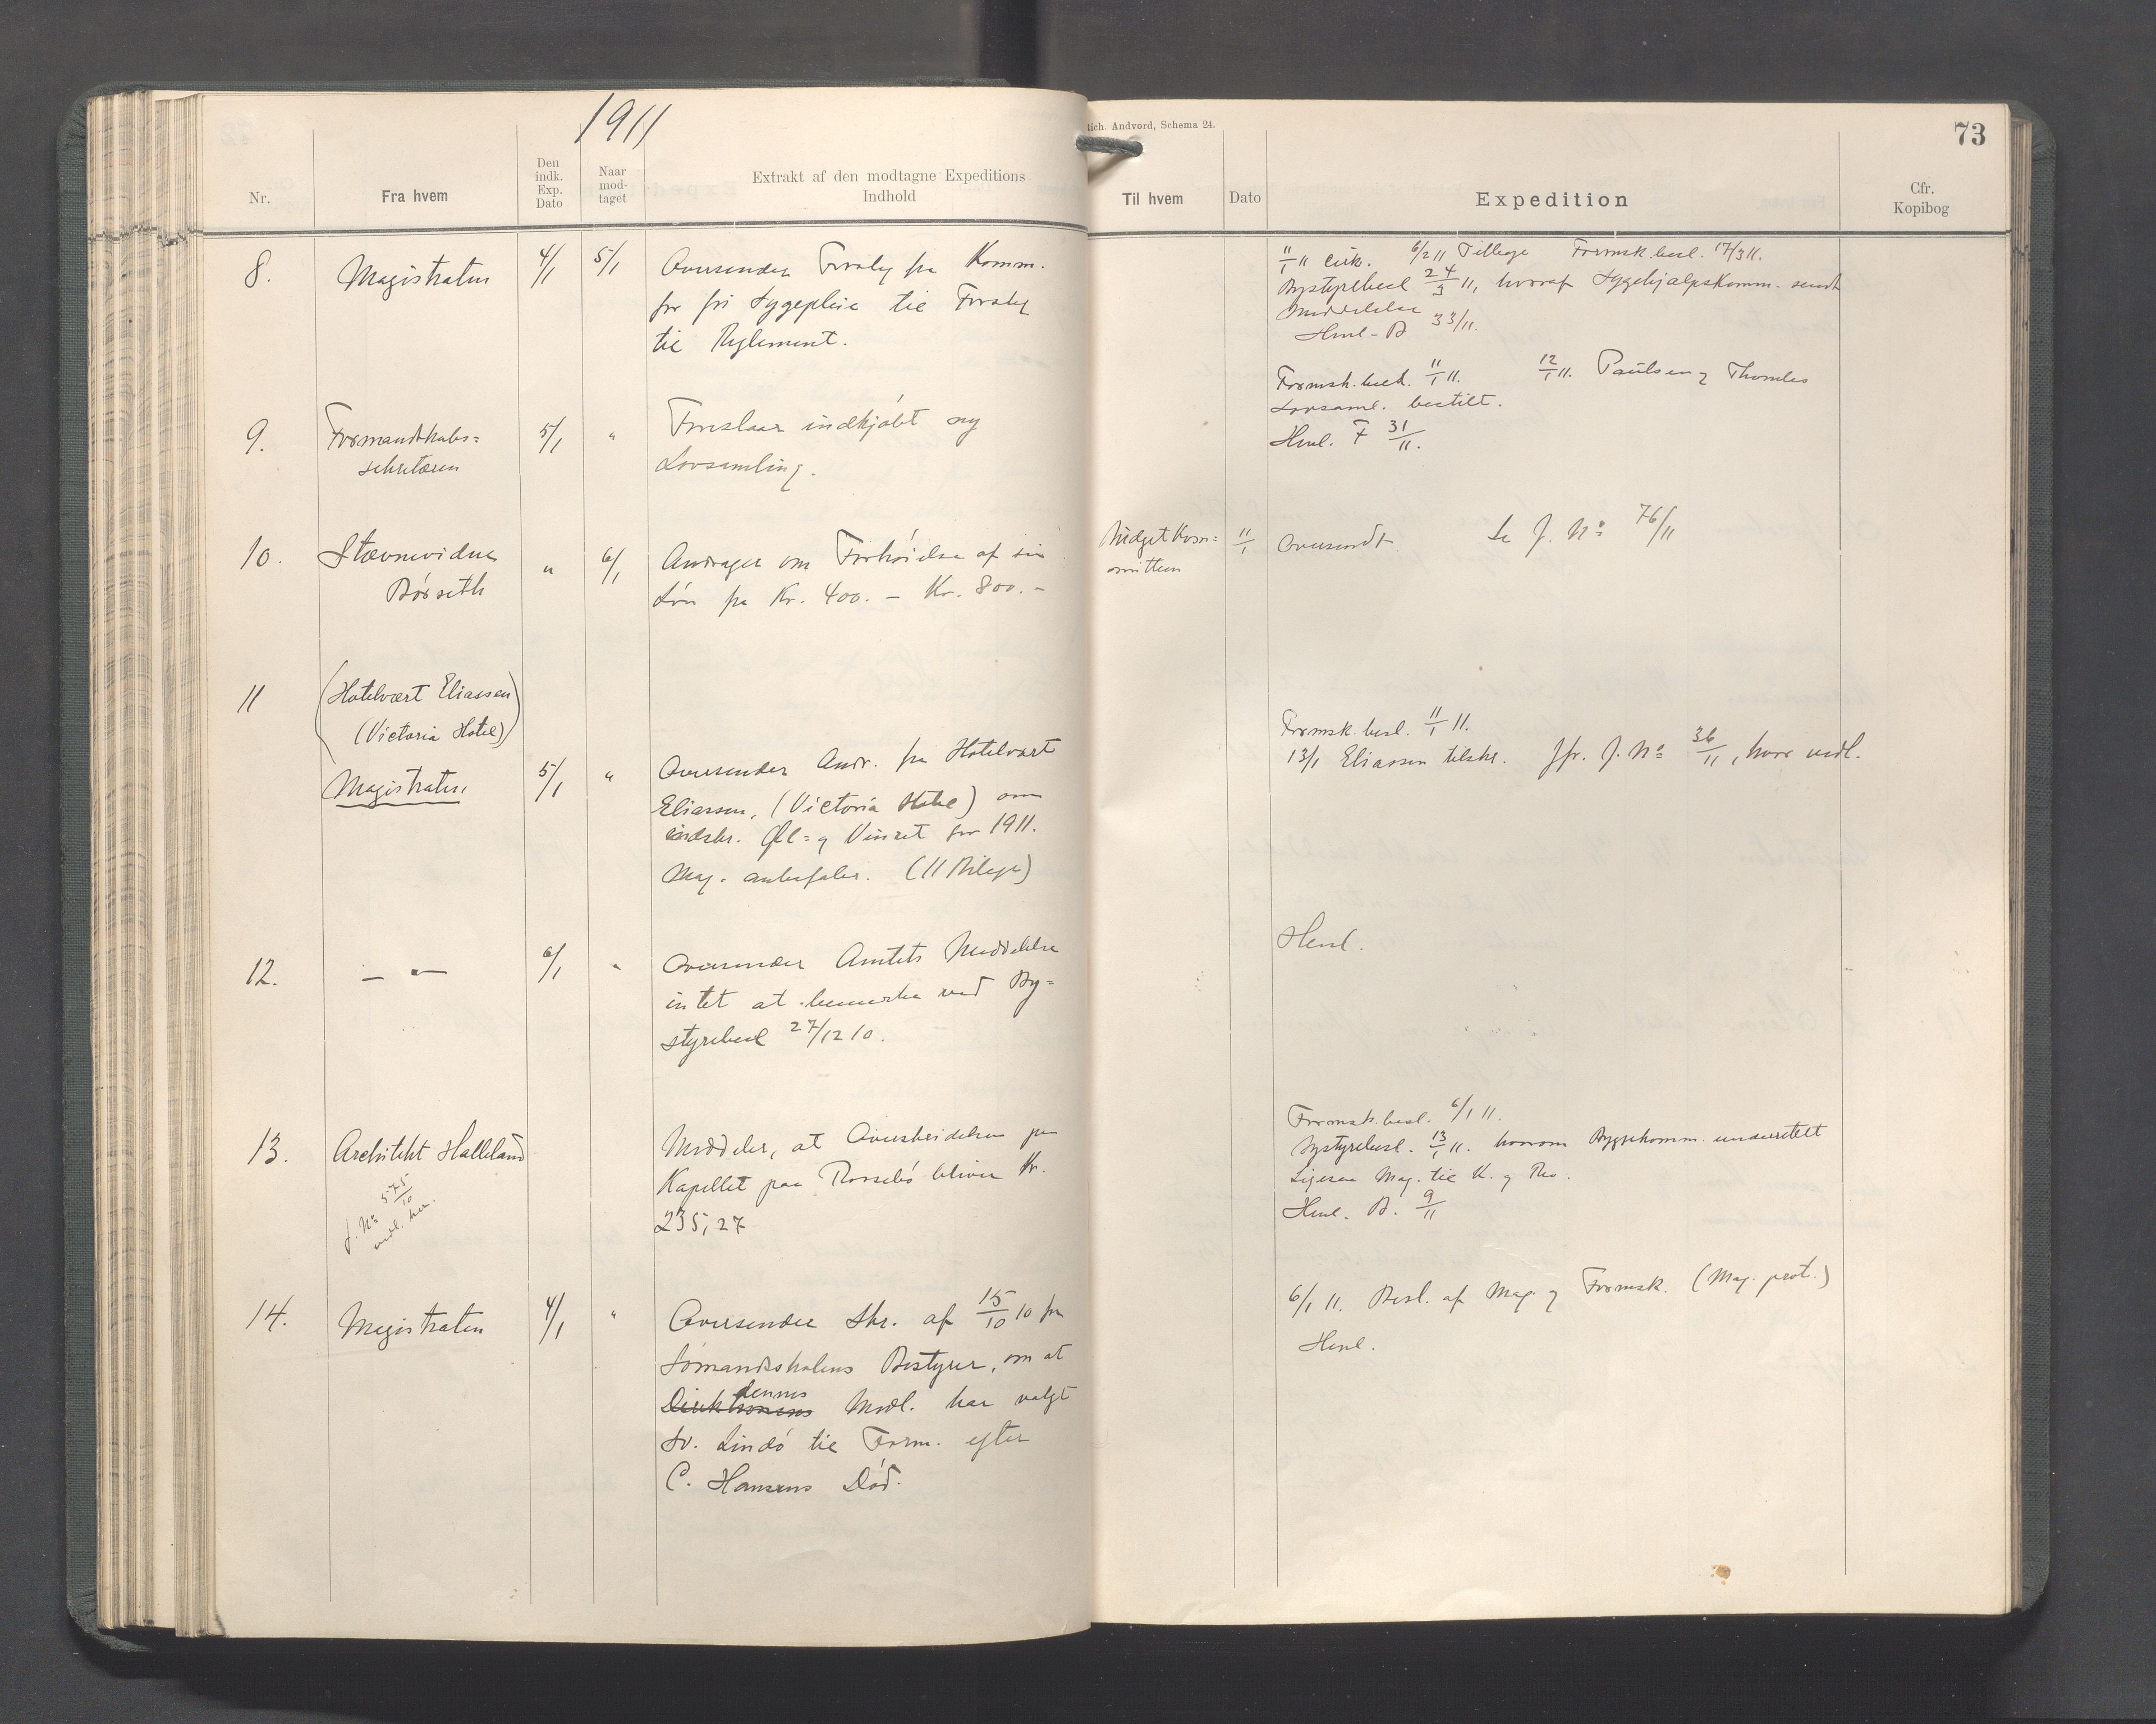 1911
Nr.
Fra hvem
Den indk. Exp. Dato
Naar mod- taget
Extrakt af den modtagne Expeditions Indhold
ich. Andvord, Schema 24.
Til hvem
Dato
Expedition
Cfr. Kopibog
73
8.
Magistraten
4/1
5/1
Oversender Forslag fra Komm.
for fri Sygepleie til Forslag
til Reglement.
11/1 11 Cirk. 6/2 11 Tillæge Formsk.besl. 17/3 11.
Bystyrebesl 24/3 11, hvoraf Sygehjælpskomm. sendt
Meddelelse
Henl-B 33/11.
9.
Formandskabs=
sekretæren
5/1
"
Foreslaar indkjøbt ny
Lovsamling.
Formsk.besl. 11/1 11. 12/1 11. Paulsen og Thomles
Lovsaml. bestilt.
Henl. F 31/11.
10.
Stævnevidne
Børseth
"
6/1
Andrager om Forhøielse af sin
Løn fra Kr. 400. - Kr. 800. -
Budgetkom=
mitteen
11/1
Oversendt. Se J. No 76/11
11
(Hotelvært Eliassen
(Victoria Hotel))
Magistraten
5/1
"
Oversender Andr. fra Hotelvært
Eliassen, (Victoria Hotel) om
indskr. Øl= og Vinret for 1911.
Mag. anbefaler. (11 Bilage)
Formsk.besl. 11/1 11.
13/1 Eliassen tilskr. Jfr. J. No 36/11, hvor vedl.
12.
— " —
6/1
"
Oversender Amtets Meddelelse
intet at bemerke ved By=
styrebesl 27/12 10.
Henl.
13.
Architekt Halleland
J. No 575/10
vedl. her.
Meddeler, at Overskridelsen paa
Kapellet paa Rossebø bliver Kr.
235,27
Formsk.besl. 6/1 11.
Bystyrebesl. 13/1 11. hvorom Byggekomm. underrettet
Ligesaa Mag. til K. og Rev.
Henl. B. 9/11
14.
Magistraten
4/1
"
Oversender Skr. af 15/10 10 fra
Sømandsskolens Bestyrer, om at
Direktionens dennes Medl. har valgt
Sv. Lindø til Form. efter
C. Hansens Død.
6/1 11. Besl. af Mag. og Formsk. (Mag. prot.)
Henl.